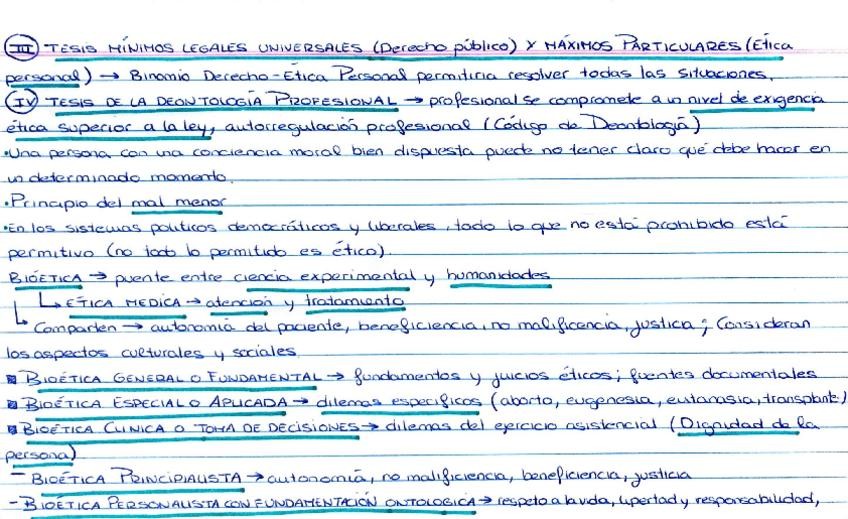 III TESIS MÍNIMOS LEGALES UNIVERSALES (Derecho público) Y MÁXIMOS PARTICULARES (Ética
personal) → Binomio Derecho-Ética Personal permitiría resolver todas las situaciones.
IV TESIS DE LA DEONTOLOGÍA PROFESIONAL → profesional se compromete a un nivel de exigencia
ética superior a la ley, autorregulación profesional (Código de Deontología)
•Una persona con una conciencia moral bien dispuesta puede no tener claro qué debe hacer en
un determinado momento.
•Principio del mal menor
•En los sistemas políticos democráticos y liberales, todo lo que no está prohibido está
permitivo (no todo lo permitido es ético).
BIOÉTICA → puente entre ciencia experimental y humanidades
↳ ÉTICA MEDICA → atención y tratamiento
↳ Comparten → autonomía del paciente, beneficiencia, no malificencia, justicia; Consideran
los aspectos culturales y sociales.
BIOÉTICA GENERAL O FUNDAMENTAL → fundamentos y juicios éticos; fuentes documentales
BIOÉTICA ESPECIAL O APLICADA → dilemas específicos (aborto, eugenesia, eutanasia, transplante)
BIOÉTICA CLINICA O TOMA DE DECISIONES → dilemas del ejercicio asistencial (Dignidad de la
persona)
- BIOÉTICA PRINCIPIALISTA → autonomía, no malificiencia, beneficiencia, justicia
- BIOÉTICA PERSONALISTA CON FUNDAMENTACIÓN ONTOLOGICA → respeto a la vida, libertad y responsabilidad,